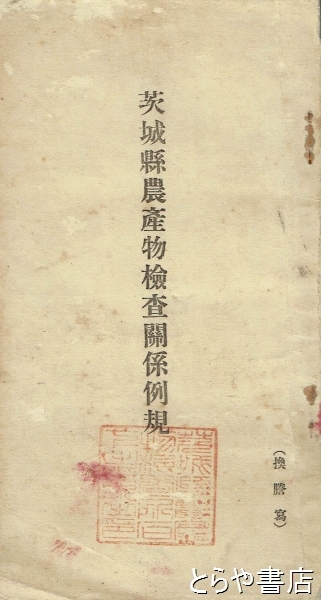 茨城縣農產物檢查關係例規
(換謄寫)
とらや書店